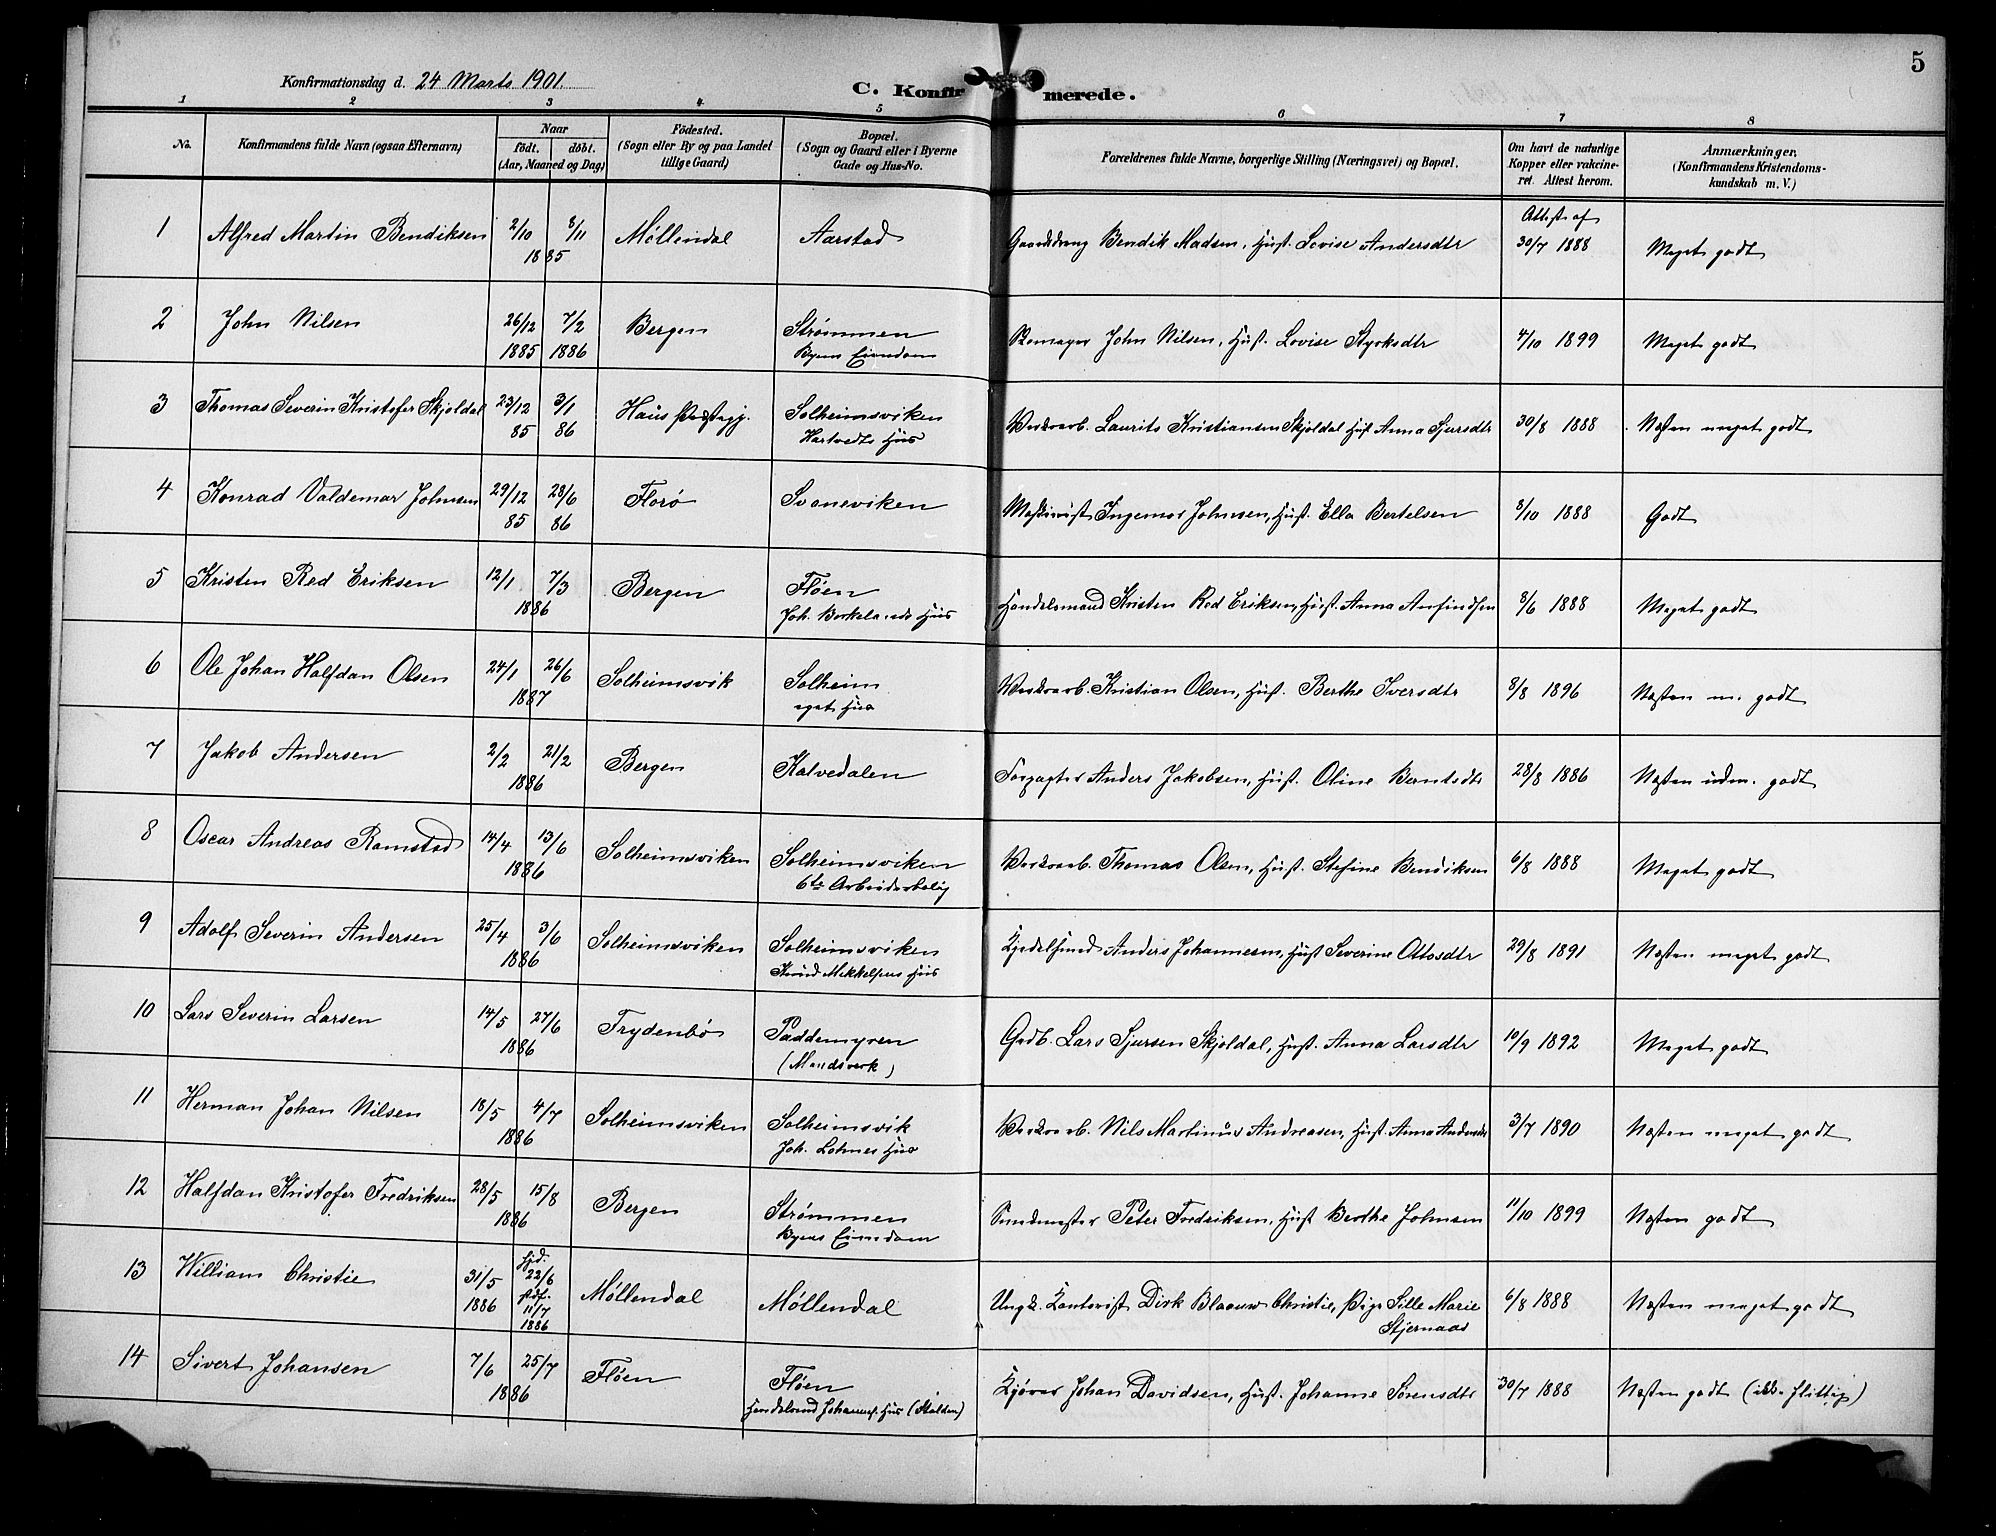 5
Konfirmationsdag d. 24 Marts 1901.
C. Konfirmerede.
1 2 3 4 5 6 7 8
No. Konfirmandens fulde Navn (ogsaa Efternavn) Naar født. døbt. (Aar, Maaned og Dag) Fødested. (Sogn eller By og paa Landet tillige Gaard) Bopæl. (Sogn og Gaard eller i Byerne Gade og Hus-No. Forældrenes fulde Navne, borgerlige Stilling (Næringsvei) og Bopæl. Om havt de naturlige Kopper eller vakcineret. Attest herom. Anmærkninger. (Konfirmandens Kristendomskundskab m. V.)
Attest af
1 Alfred Martin Bendiksen 2/10 8/11 Møllendal Aarstad Gaardsdreng Bendik Madsen, Hust. Lovise Andersdtr 30/7 1888 Meget godt
1885
2 John Nilsen 26/12 7/2 Bergen Strømmen John Nilsen, Hust. Lovise Styrksdtr 4/10 1899 Meget godt
1885 1886 Byens Eiendom
3 Thomas Severin Kristofer Skjoldal 23/12 3/1 Haus Solheimsviken Verksarb. Laurits Kristiansen Skjoldal Hust Anna Sjursdtr 30/8 1888 Næsten meget godt
85 86 Hartvedts Hus
4 Konrad Valdemar Johnsen 29/12 28/6 Florø Svaneviken Maskinist Ingemar Johnsen, Hust. Ella Bertelsen 8/10 1888 Godt
85 86
5 Kristen Red Eriksen 12/1 7/3 Bergen Fløen Handelsmand Kristen Red Eriksen, Hust. Anna Anfindsen 8/6 1888 Meget godt
1886 Joh. Birkelands Hus
6 Ole Johan Halfdan Olsen 24/1 26/6 Solheimsvik Solheim Verksarb. Kristian Olsen, Hust. Berthe Iversdtr 8/8 1896 Næsten m. godt
1887 eget Hus
7 Jakob Andersen 2/2 21/2 Bergen Kalvedalen Forpagter Anders Jakobsen, Hust. Oline Berntsdtr 28/8 1886 Næsten udm. godt
1886
8 Oscar Andreas Ramstad 14/4 13/6 Solheimsviken Solheimsviken Verksarb. Thomas Olsen, Hust. Stefine Bendiksen 6/8 1888 Meget godt
1886 6te Arbeiderbolig
9 Adolf Severin Andersen 25/4 3/6 Solheimsviken Solheimsviken Kjedelsmed Anders Johannesen, Hust Severine Ottosdtr 29/8 1891 Næsten meget godt
1886 Knud Mikkelsens Hus
10 Lars Severin Larsen 14/5 27/6 Frydenbø Paddemyren Gadb. Lars Sjursen Skjoldal, Hust. Anna Larsdtr 10/9 1892 Meget godt
1886 (Mandsverk)
11 Herman Johan Nilsen 18/5 4/7 Solheimsviken Solheimsvik Verksarb. Nils Martinus Andreasen, Hust. Anna 3/7 1890 Næsten meget godt
1886 Joh. Lohnes Hus
12 Halfdan Kristofer Fredriksen 28/5 15/8 Bergen Strømmen Peter Fredriksen, Hust Berthe Johnsen 11/10 1899 Næsten godt
1886 Byens Eiendom
13 William Christie 31/5 1886 hjd. 22/6 11/7 1886 Møllendal Møllendal Ungk. Kontorist Dirk Blaauw Christie, Pige Sille Marie 6/8 1888 Næsten meget godt
Stjernaas
14 Sivert Johansen 7/6 25/7 Fløen Fløen Kjører Johan Davidsen, Hust. Johanne Sørensdtr 30/7 1888 Næsten godt (ikke flittig)
1886 Handelsmd Johannes. Hus (Stalden)